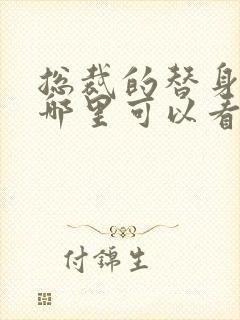 总裁的替身
哪里可以看
付锦生